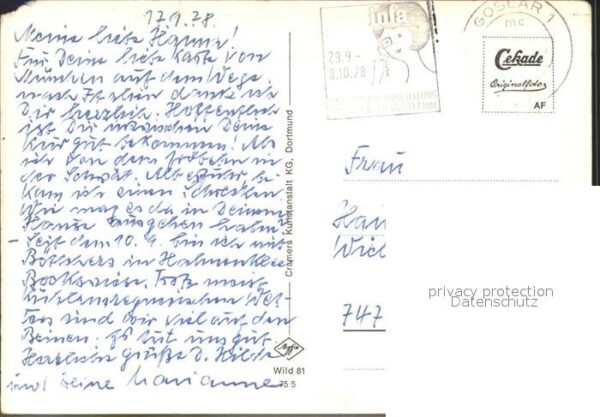 17.9.78.
Meine liebe Hanna!
Für Deine liebe Karte von
München auf dem Wege
nach Italien danke ich
Dir herzlich. Hoffentlich
ist Dir inzwischen Deine
Kur gut bekommen! Als
ich von dem Erdbeben in
der Schwäb. Alb erfuhr be-
kam ich einen Schrecken.
Wie mag es da in Deinem
Hause ausgehen haben.
Seit dem 10.9. bin ich mit
in Hahnenklee
Bockswiese. Trotz meist
kühlem regnerischen Wet-
ters sind wir viel auf den
Beinen. Es tut uns gut.
Herzliche Grüße D. Hilde
und Deine Marianne
Cramers Kunstanstalt KG, Dortmund
Agfa
Wild 81
75/5
infa
29.9.-
8.10.78
GOSLAR 1
mc
Cekade
Originalfoto
AF
Frau
747
privacy protection
Datenschutz